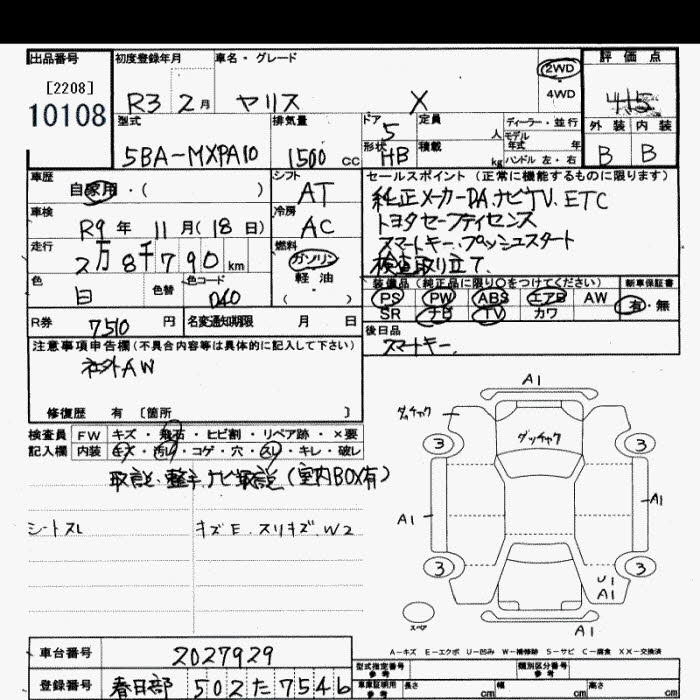 出品番号
[2208]
10108
初度登録年月
R3 2月
車名・グレード
ヤリス X
2WD
4WD
評価点
外装 内装
B B
型式
5BA-MXPA10
排気量
1500 cc
ドア
5
定員
人
形状
HB
積載
kg
ディーラー・並行
モデル年式 年
ハンドル 左・右
車歴
自家用・( )
シフト
AT
車検
R9年 11月(18日)
冷房
AC
走行
2万8千790km
燃料
ガソリン
軽油
( )
色
白
色替
色コード
040
R券
7510円
名変通知期限 月 日
セールスポイント(正常に機能するものに限ります)
純正メーカーDA.ナビTV.ETC
トヨタセーフティセンス
スマートキー.プッシュスタート
検査取り立て.
装備品(純正品に限り○をつけてください)
PS PW ABS エアB AW
SR ナビ TV カワ
新車保証書
有・無
後日品
スマートキー.
注意事項申告欄(不具合内容等は具体的に記入して下さい)
社外AW
修復歴 有 [箇所 ]
検査員
記入欄
FW キズ・飛石・ヒビ割・リペア跡・×要
内装 キズ・汚れ・コゲ・穴・スレ・キレ・破レ
取説.整手.ナビ取説(室内BOX有)
シートスレ
キズE.スリキズ.W2
A1
ダッチャク
ダッチャク
3
3
A1
A1
3
3
U1
A1
スペア
A1
A-キズ E-エクボ U-凹み W-補修跡 S-サビ C-腐食 XX-交換済
車台番号
2027929
登録番号
春日部 502 た 7546
型式指定番号
参考
類別区分番号
参考
車庫証明用
参考
長さ cm
幅 cm
高さ cm